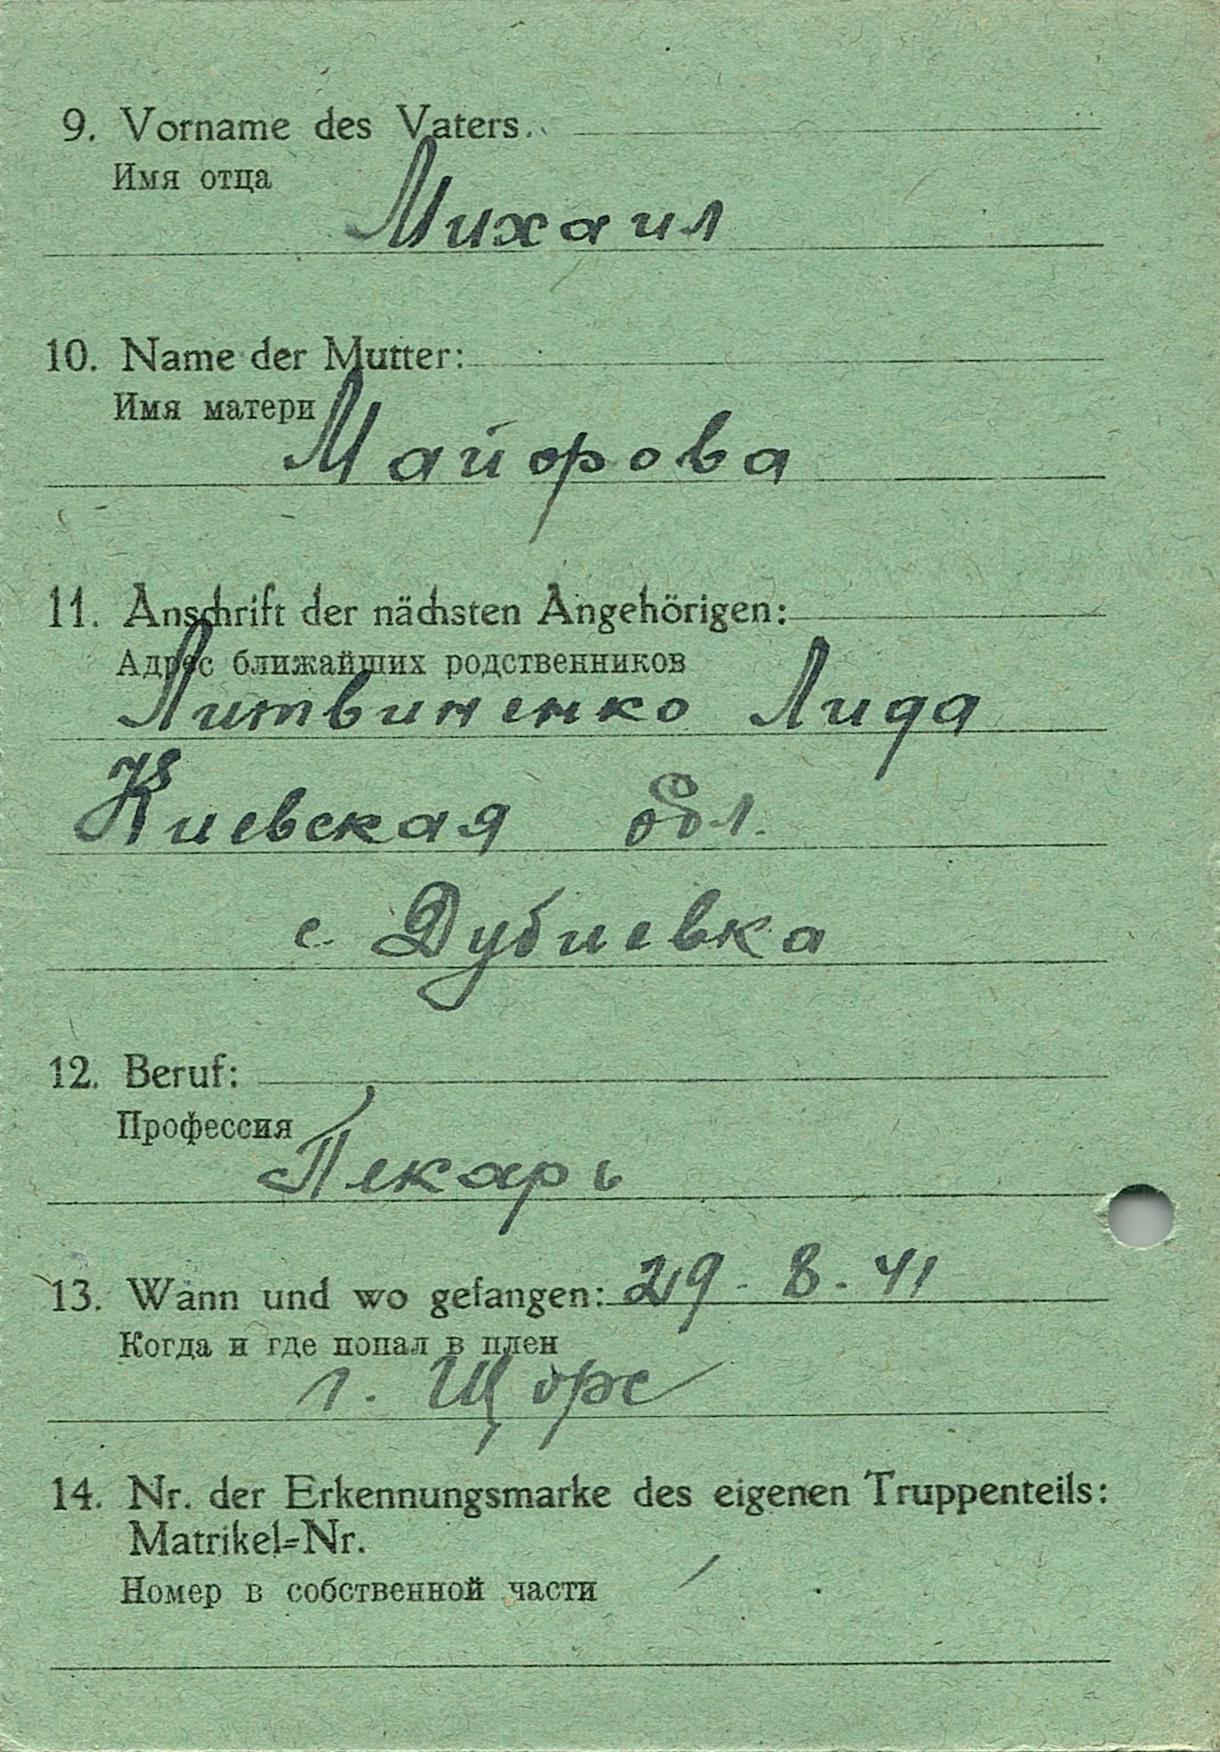 9. Vorname des Vaters.
Имя отца
Михаил
10. Name der Mutter:
Имя матери
Майорова
11. Anschrift der nächsten Angehörigen:
Адрес ближайших родственников
Литвиненко Лида
Киевская обл.
с. Дубиевка
12. Beruf:
Профессия
Пекарь
13. Wann und wo gefangen: 29. 8. 41
Когда и где попал в плен
г. Щорс
14. Nr. der Erkennungsmarke des eigenen Truppenteils:
Matrikel=Nr.
Номер в собственной части